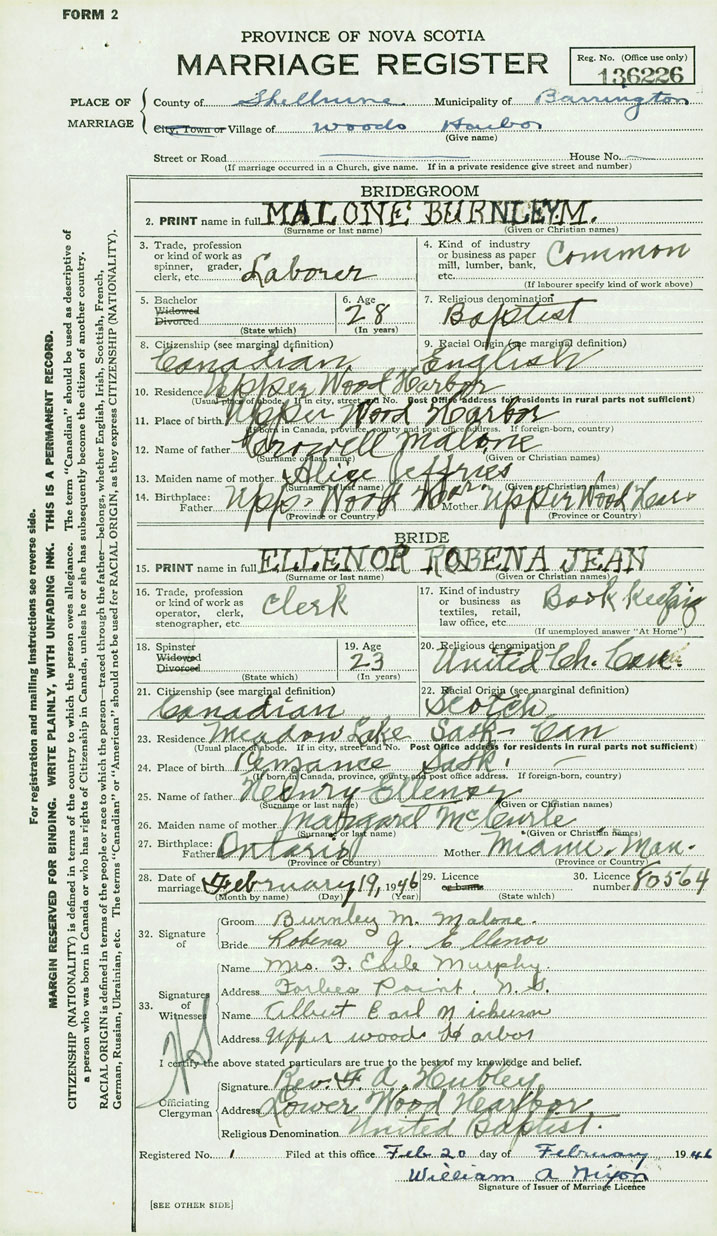 FORM 2
PROVINCE OF NOVA SCOTIA
MARRIAGE REGISTER
Reg. No. (Office use only)
136226
PLACE OF MARRIAGE
County of Shelburne Municipality of Barrington
City, Town or Village of Woods Harbor
(Give name)
Street or Road House No.
(If marriage occurred in a Church, give name. If in a private residence give street and number)
BRIDEGROOM
2. PRINT name in full MALONE BURNLEY.M.
(Surname or last name) (Given or Christian names)
3. Trade, profession or kind of work as spinner, grader, clerk, etc. Laborer
4. Kind of industry or business as paper mill, lumber, bank, etc. Common
(If labourer specify kind of work above)
5. Bachelor Widowed Divorced (State which)
6. Age 28 (In years)
7. Religious denomination Baptist
8. Citizenship (see marginal definition) Canadian
9. Racial Origin (see marginal definition) English
10. Residence Upper Wood Harbor
(Usual place of abode. If in city, street and No. Post Office address for residents in rural parts not sufficient)
11. Place of birth Upper Wood Harbor
(If born in Canada, province, county and post office address. If foreign-born, country)
12. Name of father Crowell Malone
(Surname or last name) (Given or Christian names)
13. Maiden name of mother Alice Jeffries
(Surname or last name) (Given or Christian names)
14. Birthplace: Father Upp. Wood Har. Mother Upper Wood Har
(Province or Country) (Province or Country)
BRIDE
15. PRINT name in full ELLENOR ROBENA JEAN
(Surname or last name) (Given or Christian names)
16. Trade, profession or kind of work as operator, clerk, stenographer, etc. Clerk
17. Kind of industry or business as textiles, retail, law office, etc. Book keeping
(If unemployed answer "At Home")
18. Spinster Widowed Divorced (State which)
19. Age 23 (In years)
20. Religious denomination United Ch.
21. Citizenship (see marginal definition) Canadian
22. Racial Origin (see marginal definition) Scotch
23. Residence Meadow Lake Sask Can
(Usual place of abode. If in city, street and No. Post Office address for residents in rural parts not sufficient)
24. Place of birth Penzance Sask.
(If born in Canada, province, county and post office address. If foreign-born, country)
25. Name of father Henry Ellenor
(Surname or last name) (Given or Christian names)
26. Maiden name of mother Margaret McCurle
(Surname or last name) (Given or Christian names)
27. Birthplace: Father Ontario Mother Miami, Man.
(Province or Country) (Province or Country)
28. Date of marriage February 19, 1946
(Month by name) (Day) (Year)
29. Licence or banns (State which)
30. Licence number 80564
32. Signature of
Groom Burnley M. Malone.
Bride Robena J. Ellenor
33. Signatures of Witnesses
Name Mrs. F. Earle Murphy.
Address Forbes Point, N.S.
Name Albert Earl Nickerson
Address Upper wood Harbor
I certify the above stated particulars are true to the best of my knowledge and belief.
Officiating Clergyman
Signature Rev. F. A. Hubley
Address Lower Wood Harbor
Religious Denomination United Baptist.
Registered No. 1 Filed at this office Feb 20 day of February 1946
William A Nixon
Signature of Issuer of Marriage Licence
[SEE OTHER SIDE]
For registration and mailing instructions see reverse side.
MARGIN RESERVED FOR BINDING. WRITE PLAINLY, WITH UNFADING INK. THIS IS A PERMANENT RECORD.
CITIZENSHIP (NATIONALITY) is defined in terms of the country to which the person owes allegiance. The term "Canadian" should be used as descriptive of
a person who was born in Canada or who has rights of Citizenship in Canada, unless he or she has subsequently become the citizen of another country.
RACIAL ORIGIN is defined in terms of the people or race to which the person—traced through the father—belongs, whether English, Irish, Scottish, French,
German, Russian, Ukrainian, etc. The terms "Canadian" or "American" should not be used for RACIAL ORIGIN, as they express CITIZENSHIP (NATIONALITY).